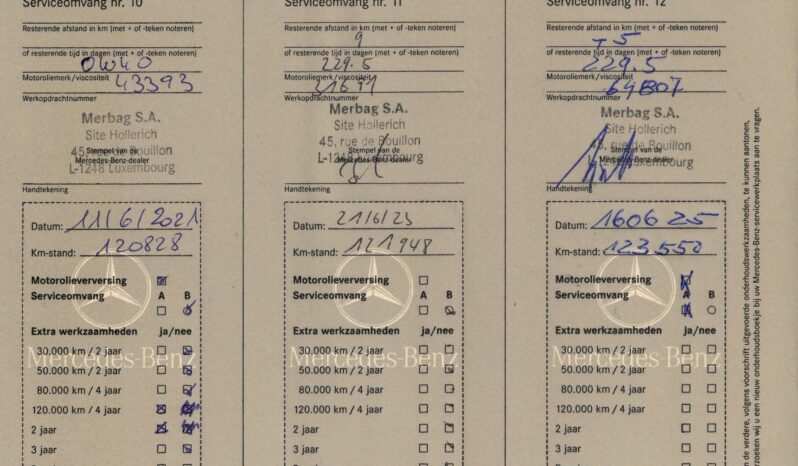 Serviceomvang nr. 10
Resterende afstand in km (met + of -teken noteren)
of resterende tijd in dagen (met + of -teken noteren)
0W40
Motoroliemerk/viscositeit
43393
Werkopdrachtnummer
Merbag S.A.
Site Hollerich
45, rue de Bouillon
Stempel van de
Mercedes-Benz-dealer
L-1248 Luxembourg
Handtekening
Datum: 11/6/2021
Km-stand: 120828
Motorolieverversing
Serviceomvang A B
Extra werkzaamheden ja/nee
30.000 km / 2 jaar
50.000 km / 2 jaar
80.000 km / 4 jaar
120.000 km / 4 jaar
2 jaar
3 jaar
Serviceomvang nr. 11
Resterende afstand in km (met + of -teken noteren)
9
of resterende tijd in dagen (met + of -teken noteren)
229.5
Motoroliemerk/viscositeit
31691
Werkopdrachtnummer
Merbag S.A.
Site Hollerich
45, rue de Bouillon
Stempel van de
Mercedes-Benz-dealer
L-1248 Luxembourg
Handtekening
Datum: 21/6/23
Km-stand: 121948
Motorolieverversing
Serviceomvang A B
Extra werkzaamheden ja/nee
Mercedes-Benz
30.000 km / 2 jaar
50.000 km / 2 jaar
80.000 km / 4 jaar
120.000 km / 4 jaar
2 jaar
3 jaar
Serviceomvang nr. 12
Resterende afstand in km (met + of -teken noteren)
-5
of resterende tijd in dagen (met + of -teken noteren)
229.5
Motoroliemerk/viscositeit
64807
Werkopdrachtnummer
Merbag S.A.
Site Hollerich
45, rue de Bouillon
Stempel van de
Mercedes-Benz-dealer
L-1248 Luxembourg
Handtekening
Datum: 160625
Km-stand: 123550
Motorolieverversing
Serviceomvang A B
Extra werkzaamheden ja/nee
Mercedes-Benz
30.000 km / 2 jaar
50.000 km / 2 jaar
80.000 km / 4 jaar
120.000 km / 4 jaar
2 jaar
3 jaar
n de verdere, volgens voorschrift uitgevoerde onderhoudswerkzaamheden, te kunnen aantonen,
zoeken wij u een nieuw onderhoudsboekje bij uw Mercedes-Benz-servicewerkplaats aan te vragen.